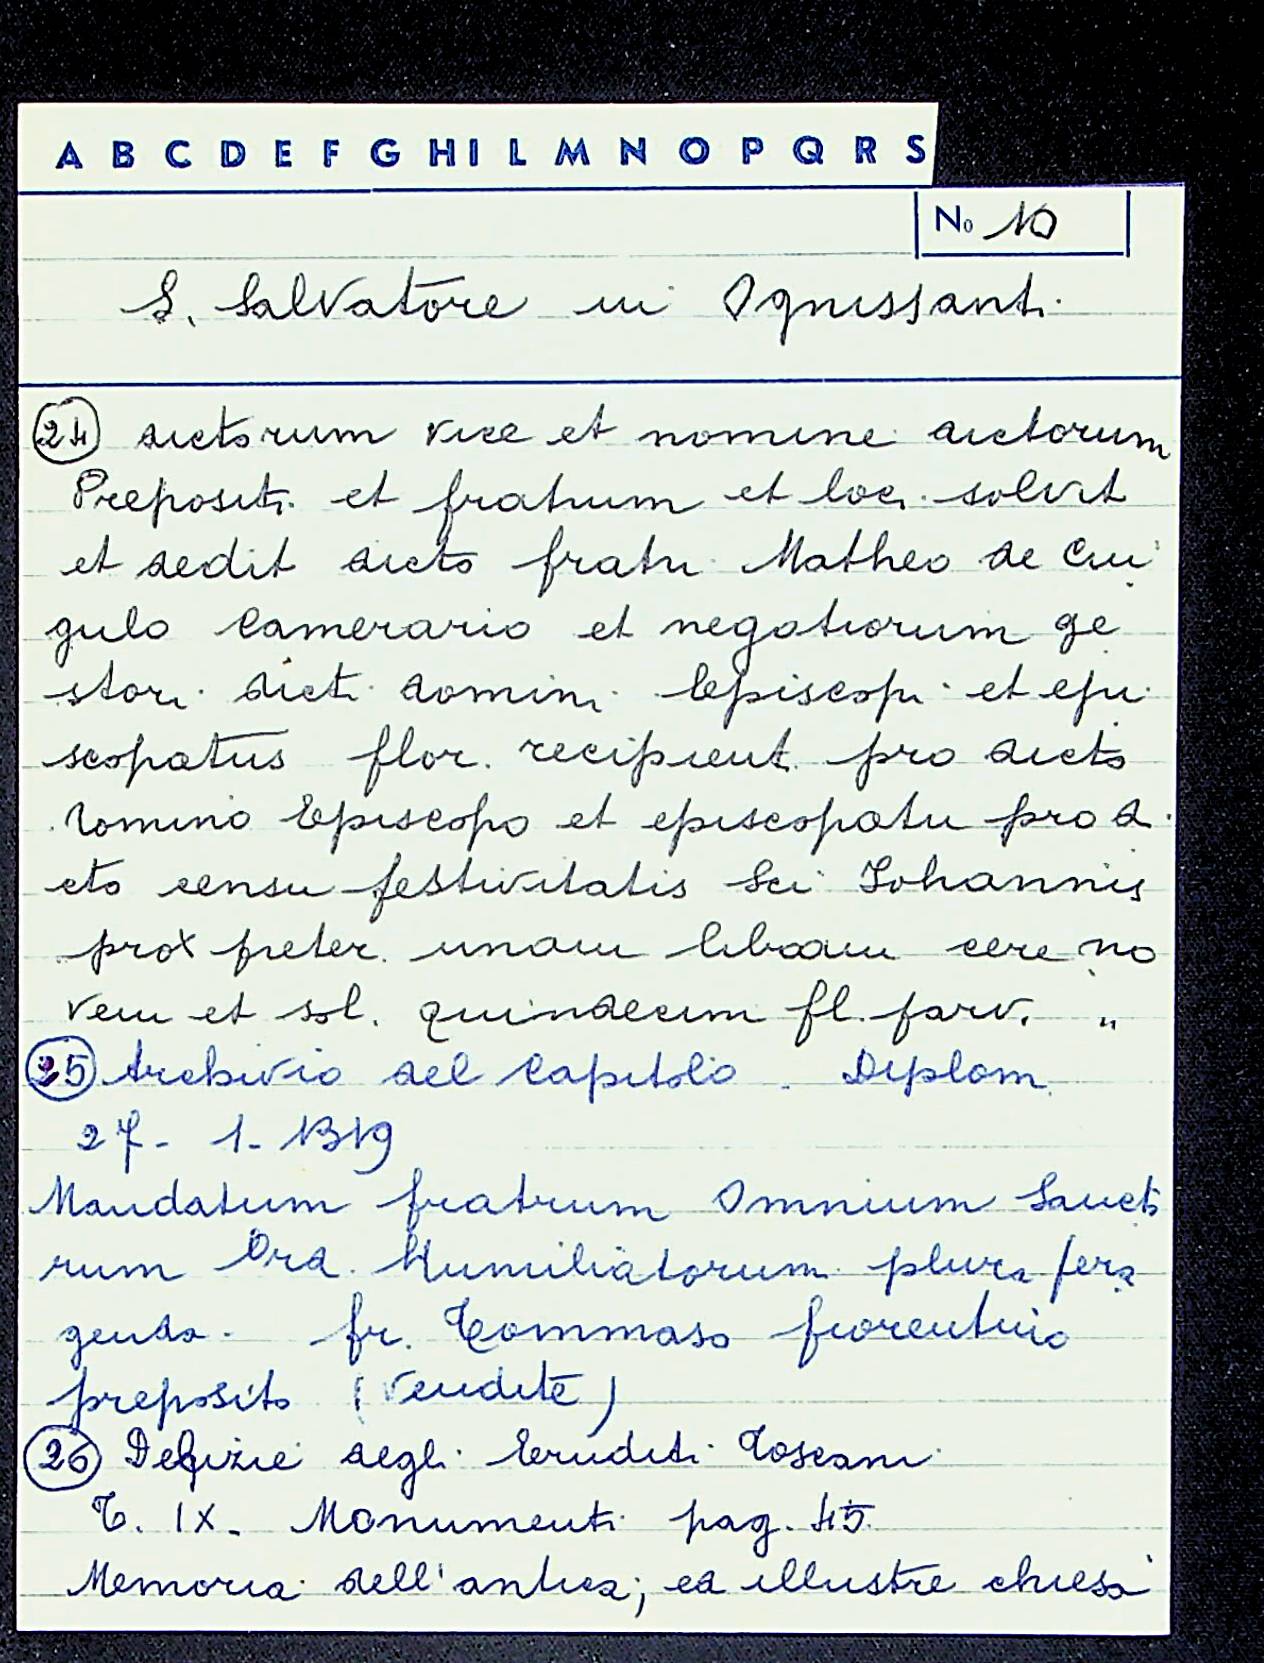 A B C D E F G H I L M N O P Q R S
No 10
S. Salvatore in Ognissanti
24 dictorum vice et nomine dictorum
Prepositi et fratrum et loci solvit
et dedit dicto fratri Matheo de Cin
gulo Camerario et negotiorum ge
stori dicti domini Episcopi et epi
scopatus flor. recipient. pro dicto
domino Episcopo et episcopatu pro di
cto censu festivitatis Sci Iohannis
prox preter. unam libram cere no
vem et sol. quindecim fl. parv. "
25 Archivio del Capitolo. Diplom.
27-1-1319
Mandatum fratrum Omnium Sancto
rum Ord. Humiliatorum plura pera
genda. fr. Tommaso fiorentino
preposito (vendite)
26 Delizie degli Eruditi Toscani
T. IX. Monumenti pag. 45
Memoria dell'antica, ed illustre chiesa